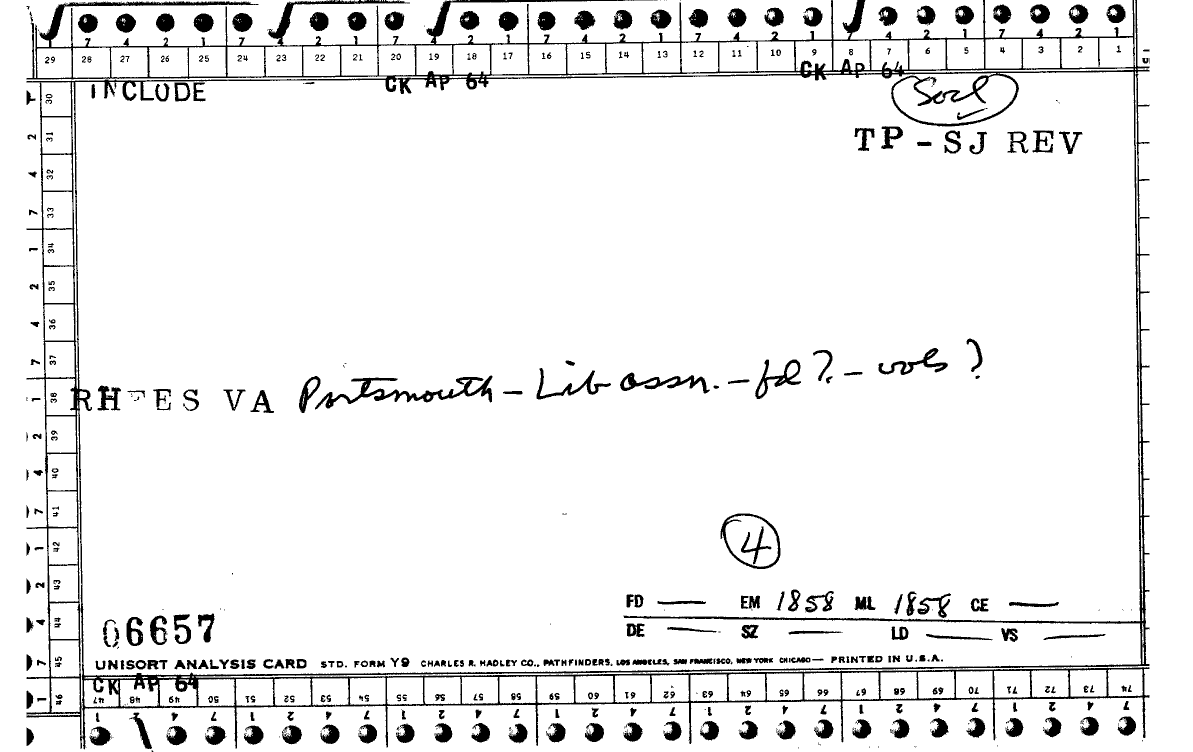 7 4 2 1 7 4 2 1 7 4 2 1 7 4 2 1 7 4 2 1 7 4 2 1 7 4 2 1
29 28 27 26 25 24 23 22 21 20 19 18 17 16 15 14 13 12 11 10 9 8 7 6 5 4 3 2 1
CK AP 64 CK AP 64
INCLUDE
Socl
TP-SJ REV
30
2 31
4 32
7 33
1 34
2 35
4 36
7 37
1 38
2 39
4 40
7 41
1 42
2 43
4 44
7 45
1 46
RHEES VA Portsmouth - Lib assn. - fd ?. - vols ?
4
FD — EM 1858 ML 1858 CE —
06657
DE — SZ — LD — VS —
UNISORT ANALYSIS CARD STD. FORM Y9 CHARLES R. HADLEY CO., PATHFINDERS, LOS ANGELES, SAN FRANCISCO, NEW YORK CHICAGO — PRINTED IN U.S.A.
CK AP 64
47 48 49 50 51 52 53 54 55 56 57 58 59 60 61 62 63 64 65 66 67 68 69 70 71 72 73 74
1 2 4 7 1 2 4 7 1 2 4 7 1 2 4 7 1 2 4 7 1 2 4 7 1 2 4 7